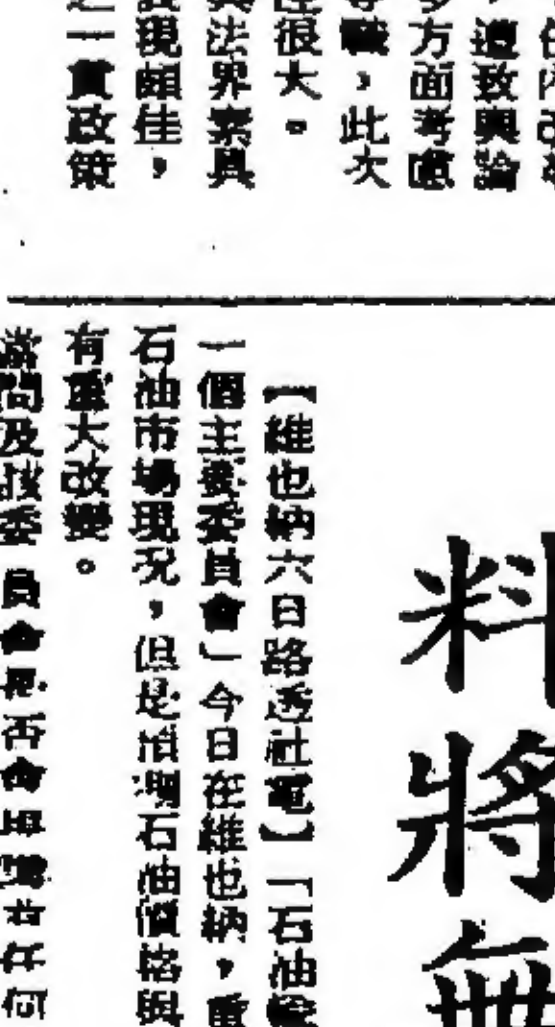 遭致輿論
多方面考慮
職，此次
很大。
與法界素具
現頗佳，
之一貫政策
料將無
【維也納六日路透社電】「石油
一個主要委員會」今日在維也納，重
石油市場現況，但是預測石油價格與
有重大改變。
當問及該委員會是否會